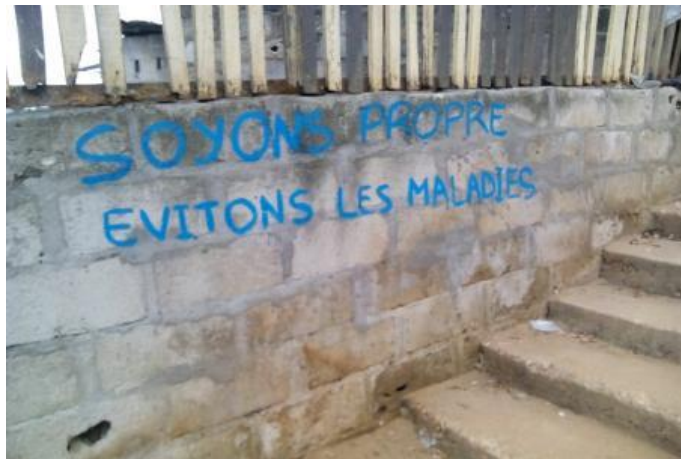 SOYONS PROPRE
EVITONS LES MALADIES